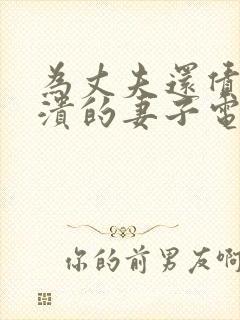 為丈夫還債
潰的妻子電
你的前男友啊